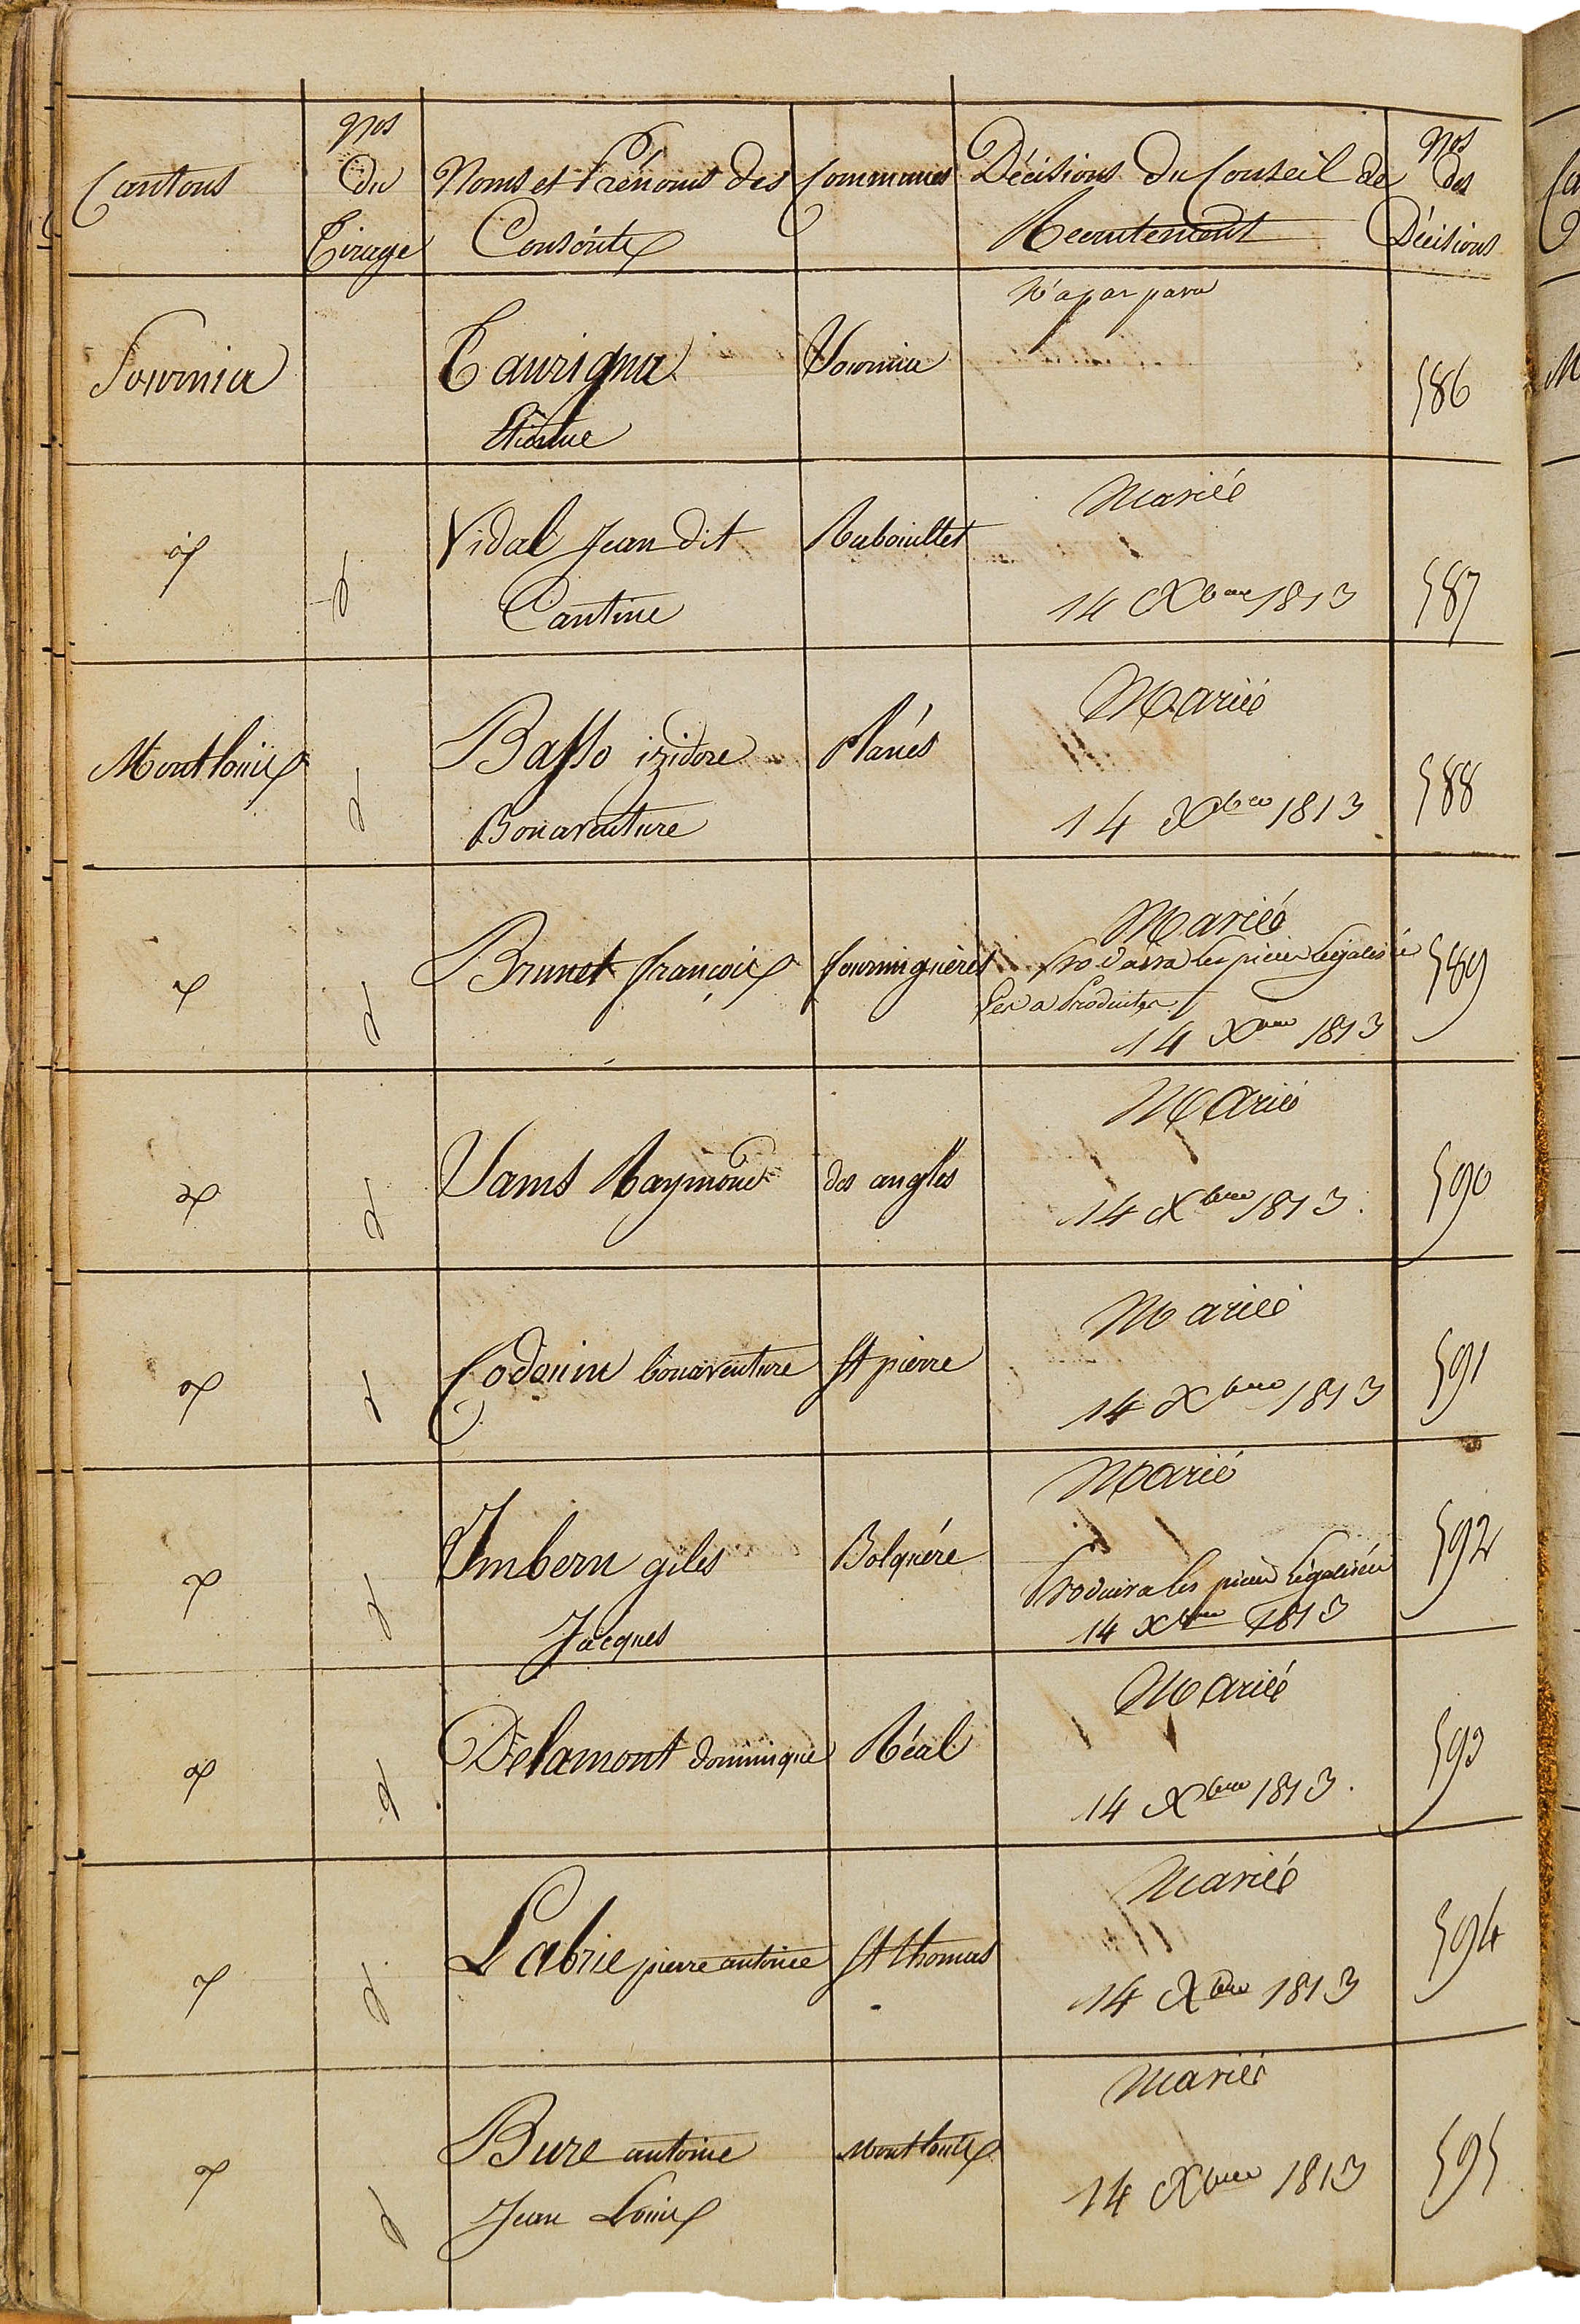 Cantons
Nos
du
Tirage
Noms et Prénoms des
Conscrits
Communes
Décisions du Conseil de
Recrutement
Nos
des
Décisions
Sournia
Taurigna
Etienne
Sournia
N'a pas paru
586
d
Vidal Jean dit
Cantine
Rabouillet
Marié
14 Xbre 1813
587
Montlouis
d
Basso izidore
Bonaventure
Planés
Marié
14 Xbre 1813
588
d
Brunet françois
formiguères
Marié
Produira les pièces légalisée
Les a Produites
14 Xbre 1813
589
d
Sams Raymond
des angles
Marié
14 Xbre 1813.
590
d
bonaventure
St pierre
Marié
14 Xbre 1813
591
d
Imbern giles
Jacques
Bolquére
Marié
Produira les pièces légalisées
14 Xbre 1813
592
d
Delamont dominique
Réal
Marié
14 Xbre 1813.
593
d
Labrie pierre antoine
St thomas
Marié
14 Xbre 1813
594
d
Bure antoine
Jean Louis
Montlouis
Marié
14 Xbre 1813
595